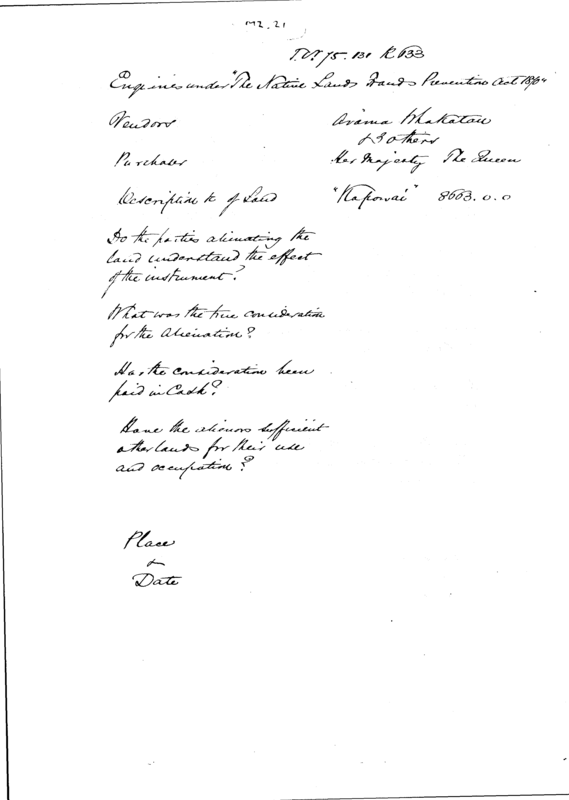 M2.21
75. 131
Enquiries under "The Native Lands Frauds Prevention Act 18
Vendors Arama Whakatau
& others
Purchaser Her Majesty The Queen
Description &c of Land "Kapowai" 8603.0.0
Do the parties alienating the
land understand the effect
of the instrument?
What was the true consideration
for the Alienation?
Has the consideration been
paid in Cash?
Have the alienors sufficient
other lands for their use
and occupation?
Place
&
Date